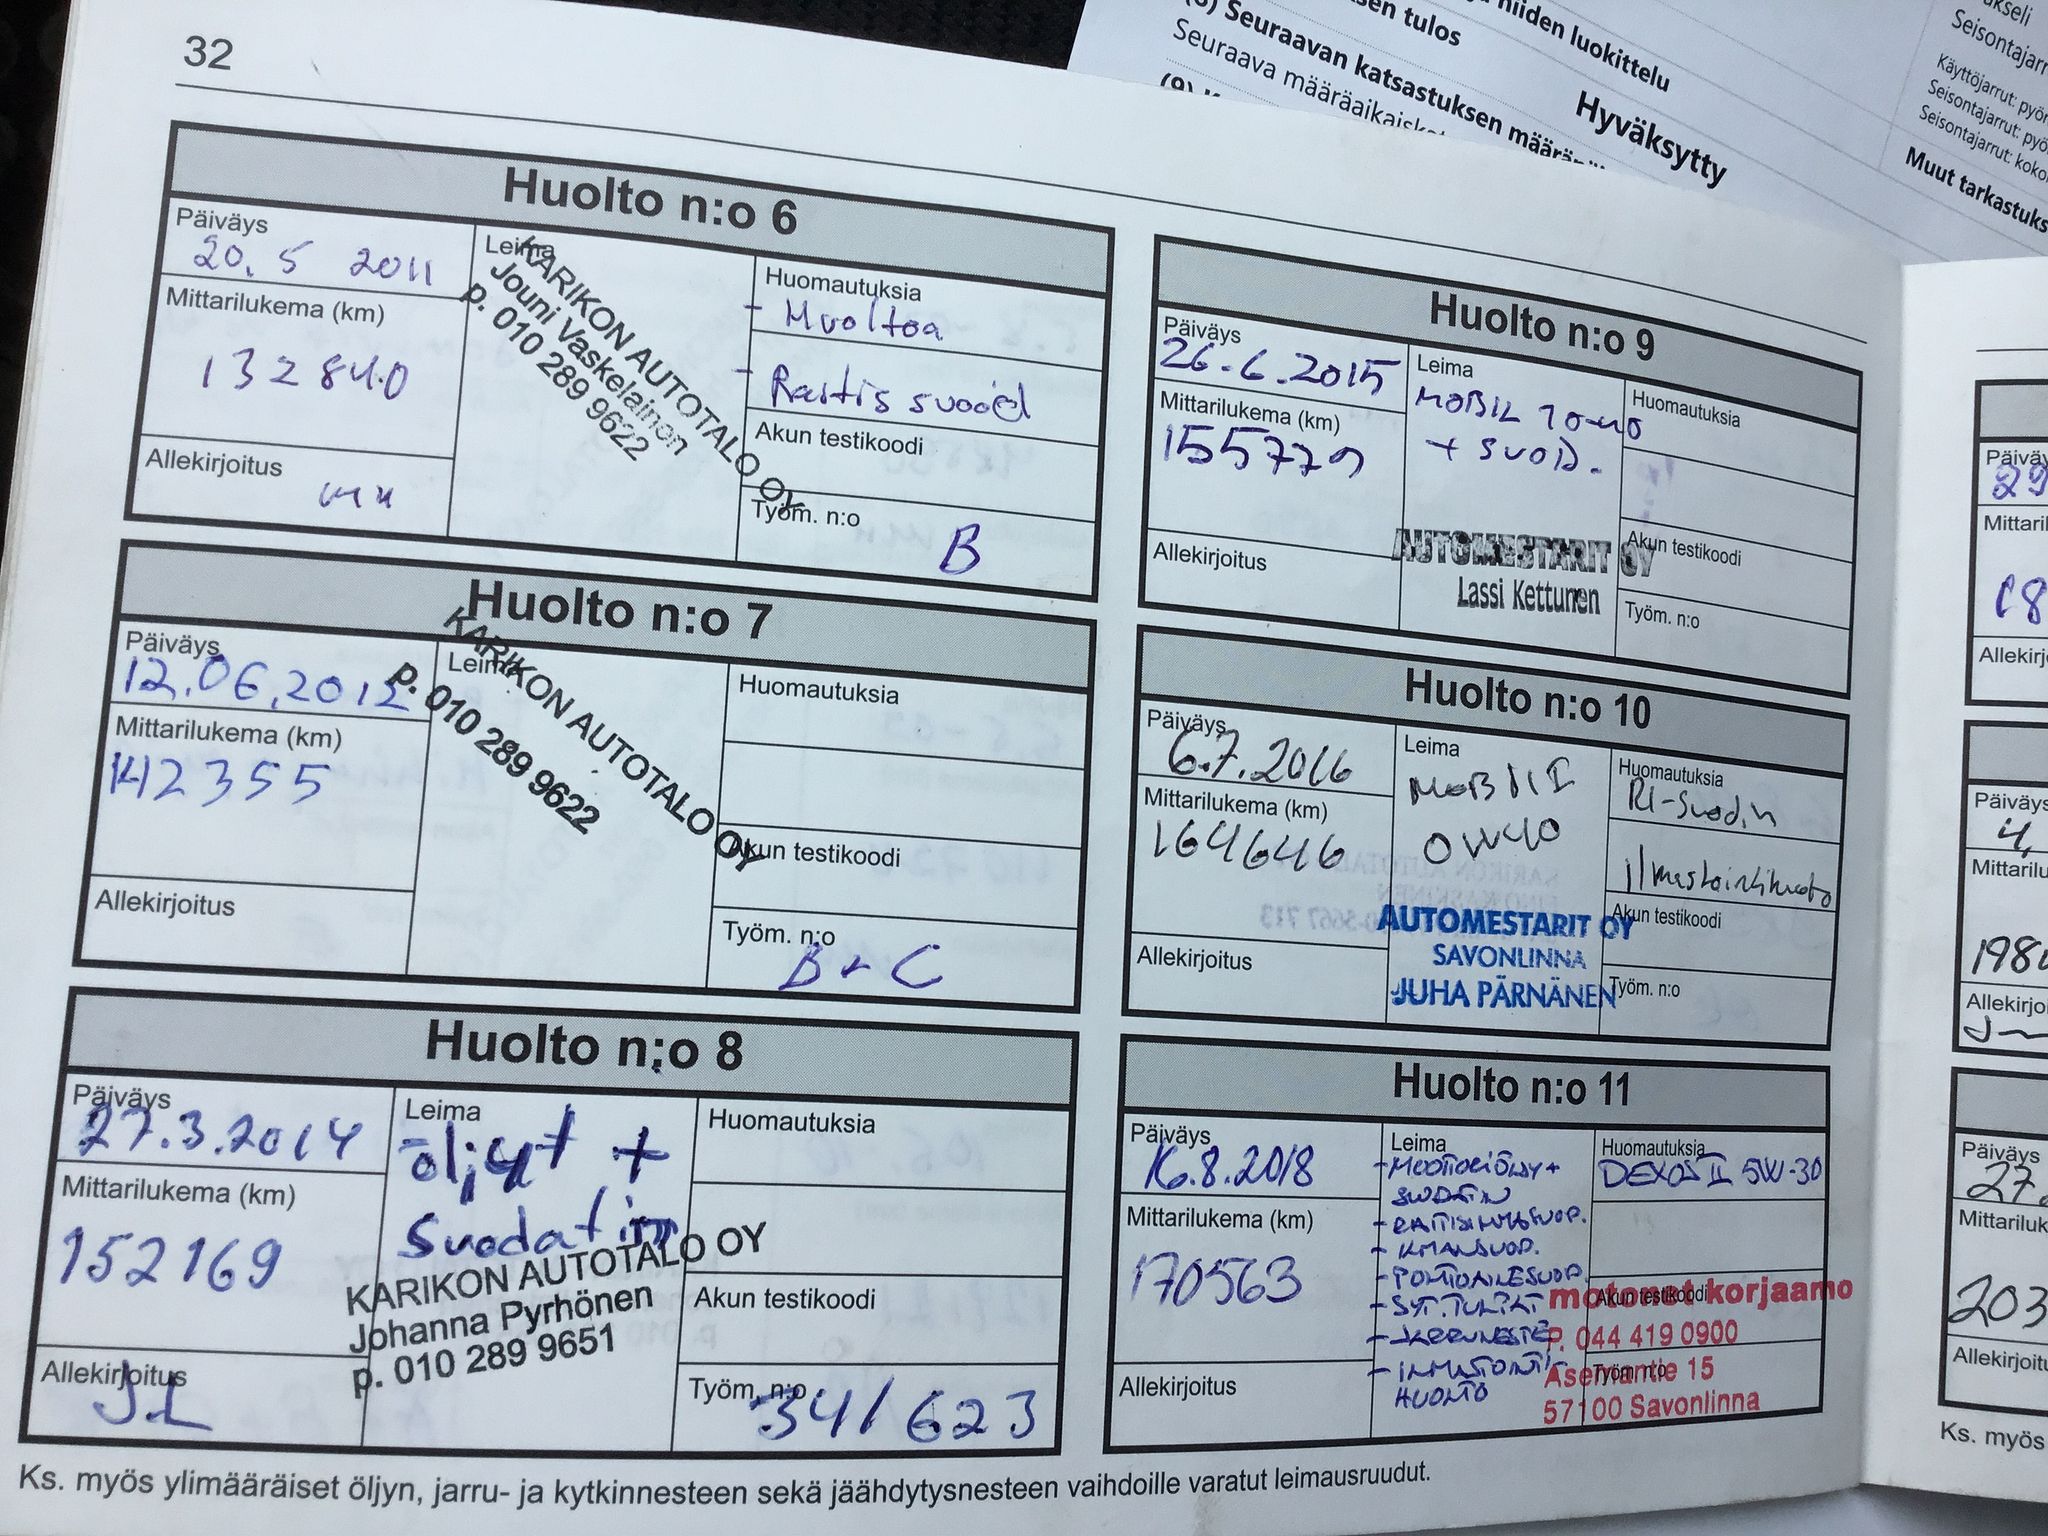 32
Huolto n:o 6
Päiväys
20.5 2011
Mittarilukema (km)
132840
Allekirjoitus
Leima
KARIKON AUTOTALO OY
Jouni Vaskelainen
p. 010 289 9622
Huomautuksia
- Huoltoa
- Raitis suod
Akun testikoodi
Työm. n:o
B
Huolto n:o 7
Päiväys
12.06.2012
Mittarilukema (km)
142355
Allekirjoitus
Leima
KARIKON AUTOTALO OY
p. 010 289 9622
Huomautuksia
Akun testikoodi
Työm. n:o
B + C
Huolto n:o 8
Päiväys
27.3.2014
Mittarilukema (km)
152169
Allekirjoitus
J.L
Leima
öljyt +
Suodatin
KARIKON AUTOTALO OY
Johanna Pyrhönen
p. 010 289 9651
Huomautuksia
Akun testikoodi
Työm. n:o
341623
Huolto n:o 9
Päiväys
26.6.2015
Mittarilukema (km)
155779
Allekirjoitus
Leima
MOBIL 10-40
+ SUOD.
AUTOMESTARIT OY
Lassi Kettunen
Huomautuksia
Akun testikoodi
Työm. n:o
Huolto n:o 10
Päiväys
6.7.2016
Mittarilukema (km)
164646
Allekirjoitus
Leima
MOBIL 1
0W40
AUTOMESTARIT OY
SAVONLINNA
JUHA PÄRNÄNEN
Huomautuksia
RI-Suodin
Ilmastointihuolto
Akun testikoodi
Työm. n:o
Huolto n:o 11
Päiväys
16.8.2018
Mittarilukema (km)
170563
Allekirjoitus
Leima
- MOOTTORIÖLJY +
SUODATIN
- RAITISILMASUOD.
- ILMANSUOD.
- POLTTOAINESUOD.
- SYT.TULPAT
- JARRUNESTE
- ILMASTOINTI
HUOLTO
Huomautuksia
DEXOS II 5W-30
Akun testikoodi
Työm. n:o
motonet korjaamo
P. 044 419 0900
Asemantie 15
57100 Savonlinna
Ks. myös ylimääräiset öljyn, jarru- ja kytkinnesteen sekä jäähdytysnesteen vaihdoille varatut leimausruudut.
niiden luokittelu
sen tulos
Hyväksytty
Seuraavan katsastuksen
Seuraava määräaikais
Seisontajarr
Käyttöjarrut: pyör
Seisontajarrut: pyö
Seisontajarrut: koko
Muut tarkastuks
Päiväy
29
Mittaril
18
Allekirj
Päiväys
4.
Mittarilu
198
Allekirjo
Päiväys
27.
Mittariluk
203
Allekirjoitu
Ks. myös